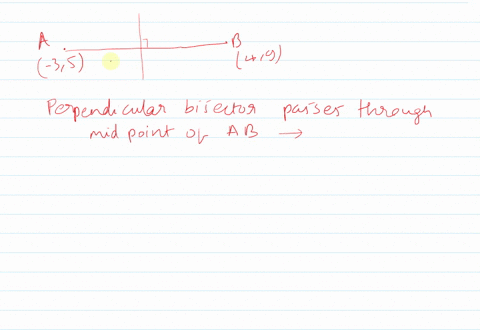 A B
(-3,5) (4,9)
Perpendicular bisector passes through
mid point of AB →